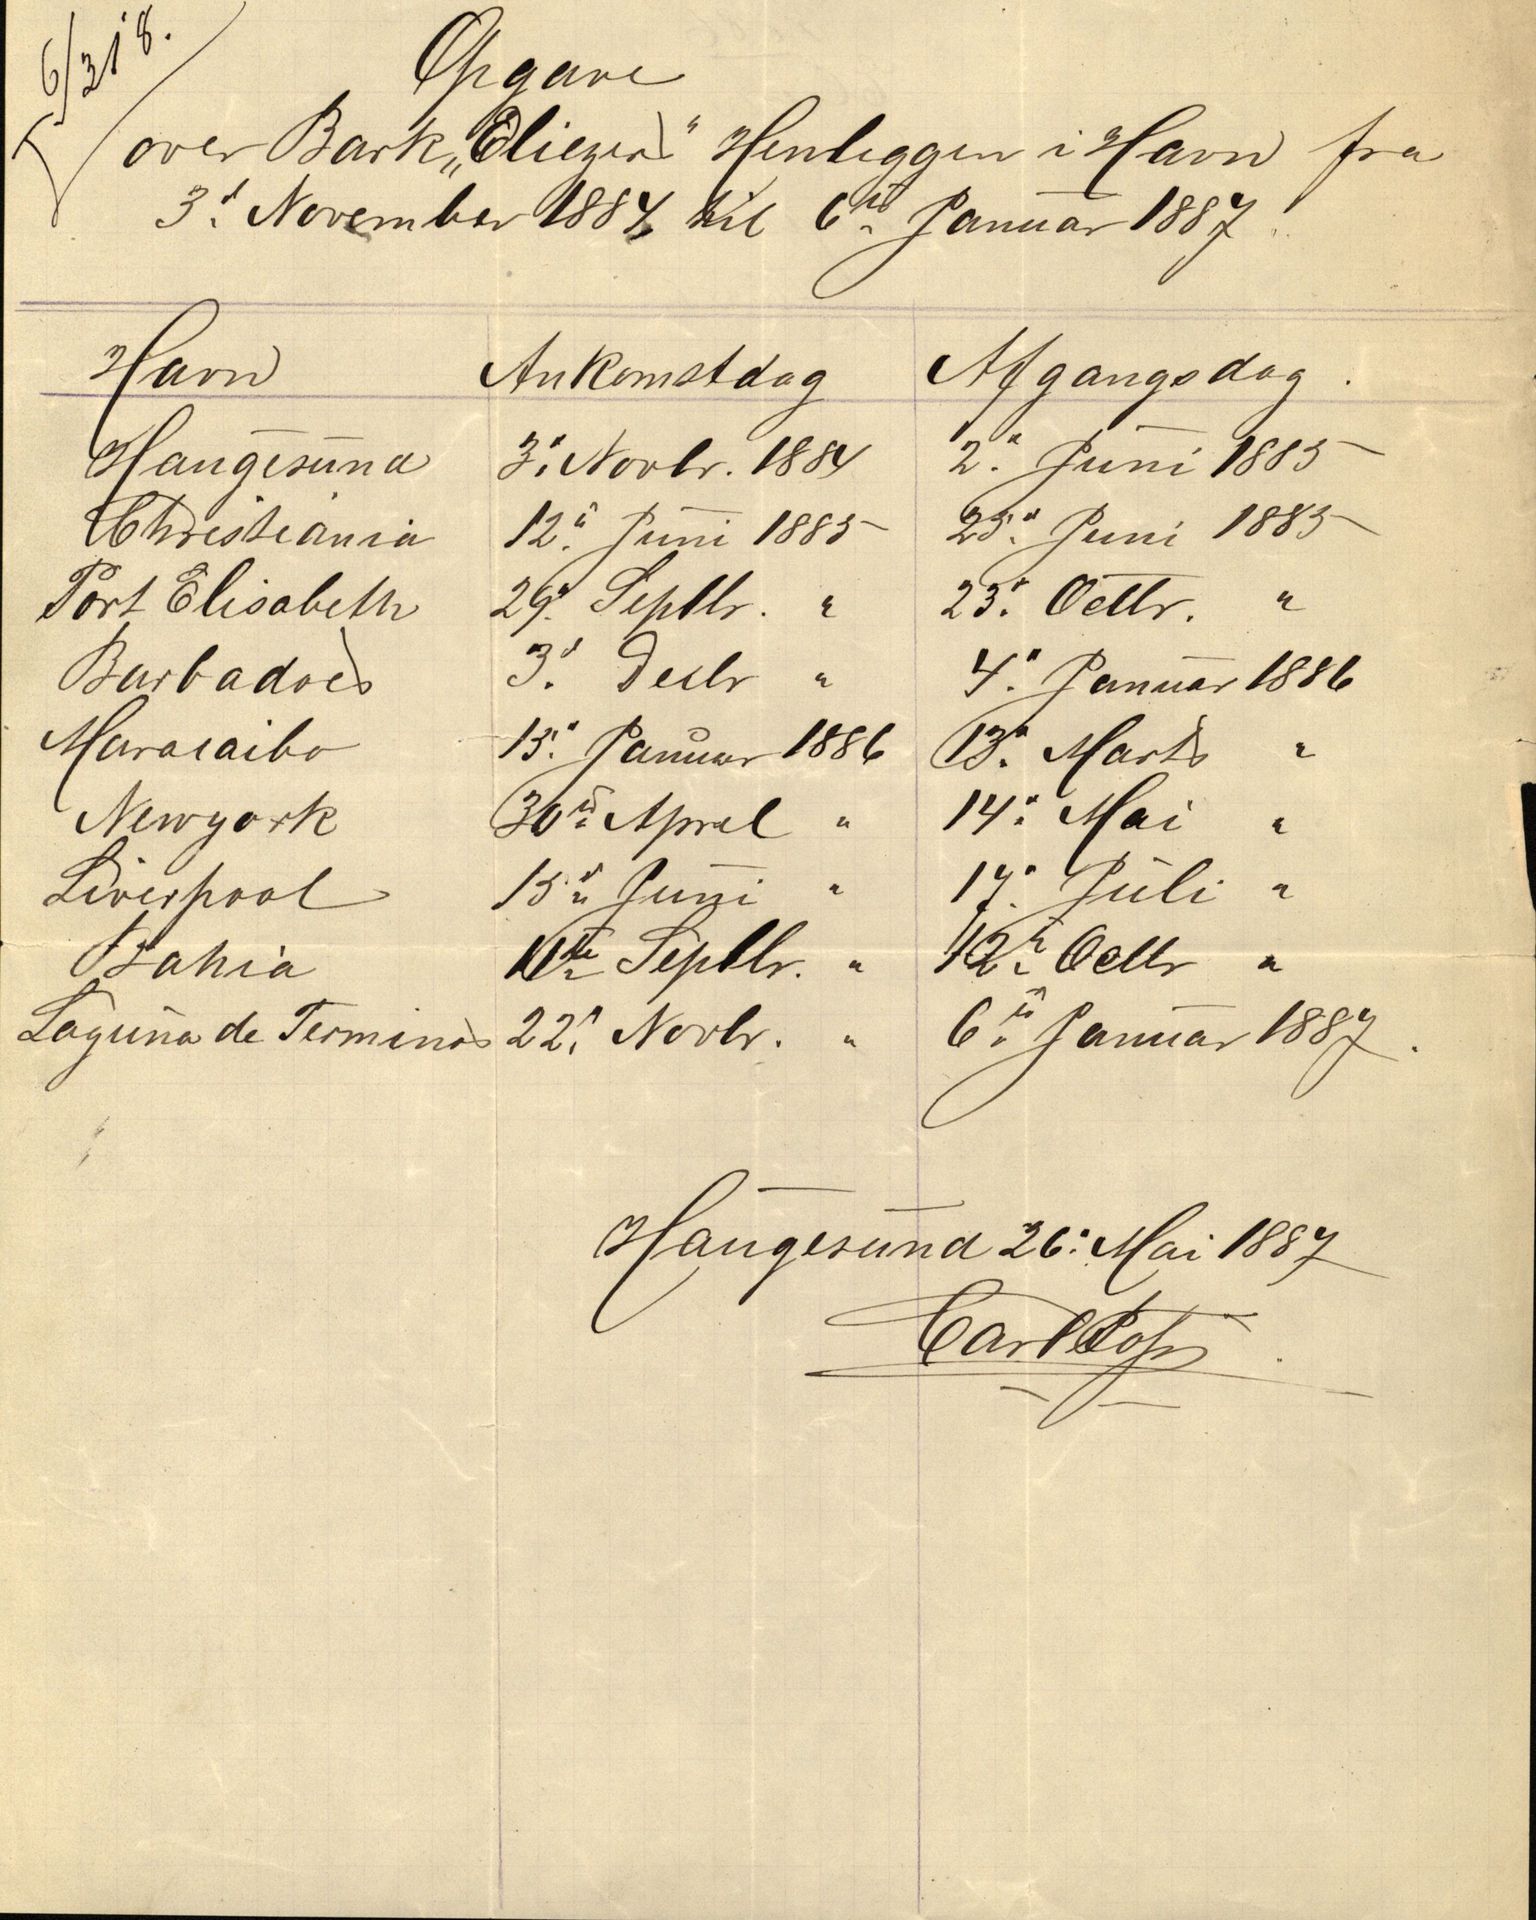 6/318.
Opgave
over Bark „Eliezer" Henliggen i Havn fra
3d November 1884 til 6te Januar 1887
Havn Ankomstdag Afgangsdag.
Haugesund 3. Novbr. 1884 2. Juni 1885
Christiania 12. Juni 1885 25. Juni 1885
Port Elisabeth 29. Septbr. " 23. Octbr. "
Barbadoes 3. Decbr " 4. Januar 1886
Maracaibo 15. Januar 1886 13. Marts "
Newyork 30te April " 14. Mai "
Liverpool 15. Juni " 17. Juli "
Bahia 11te Septbr. " 12te Octbr "
Laguna de Terminos 22. Novbr. " 6te Januar 1887.
Haugesund 26. Mai 1887
Carl